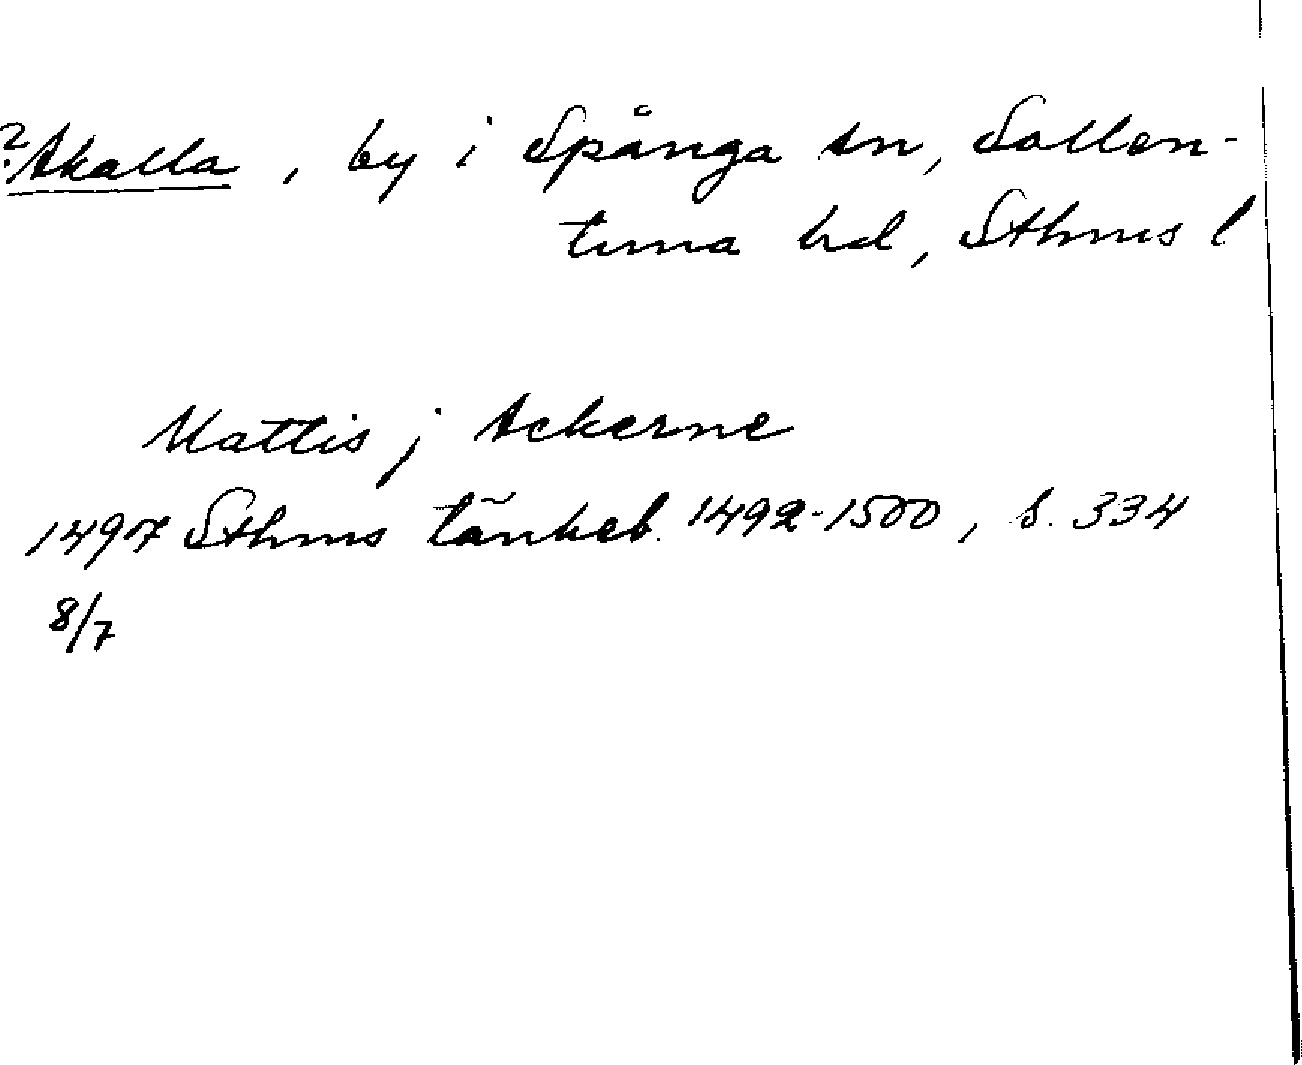 ? Akalla, by i Spånga sn, Sollen-
tuna hd, Sthms l
Mattis j Ackerne
1497 Sthms tänkeb. 1492-1500, s. 334
8/7